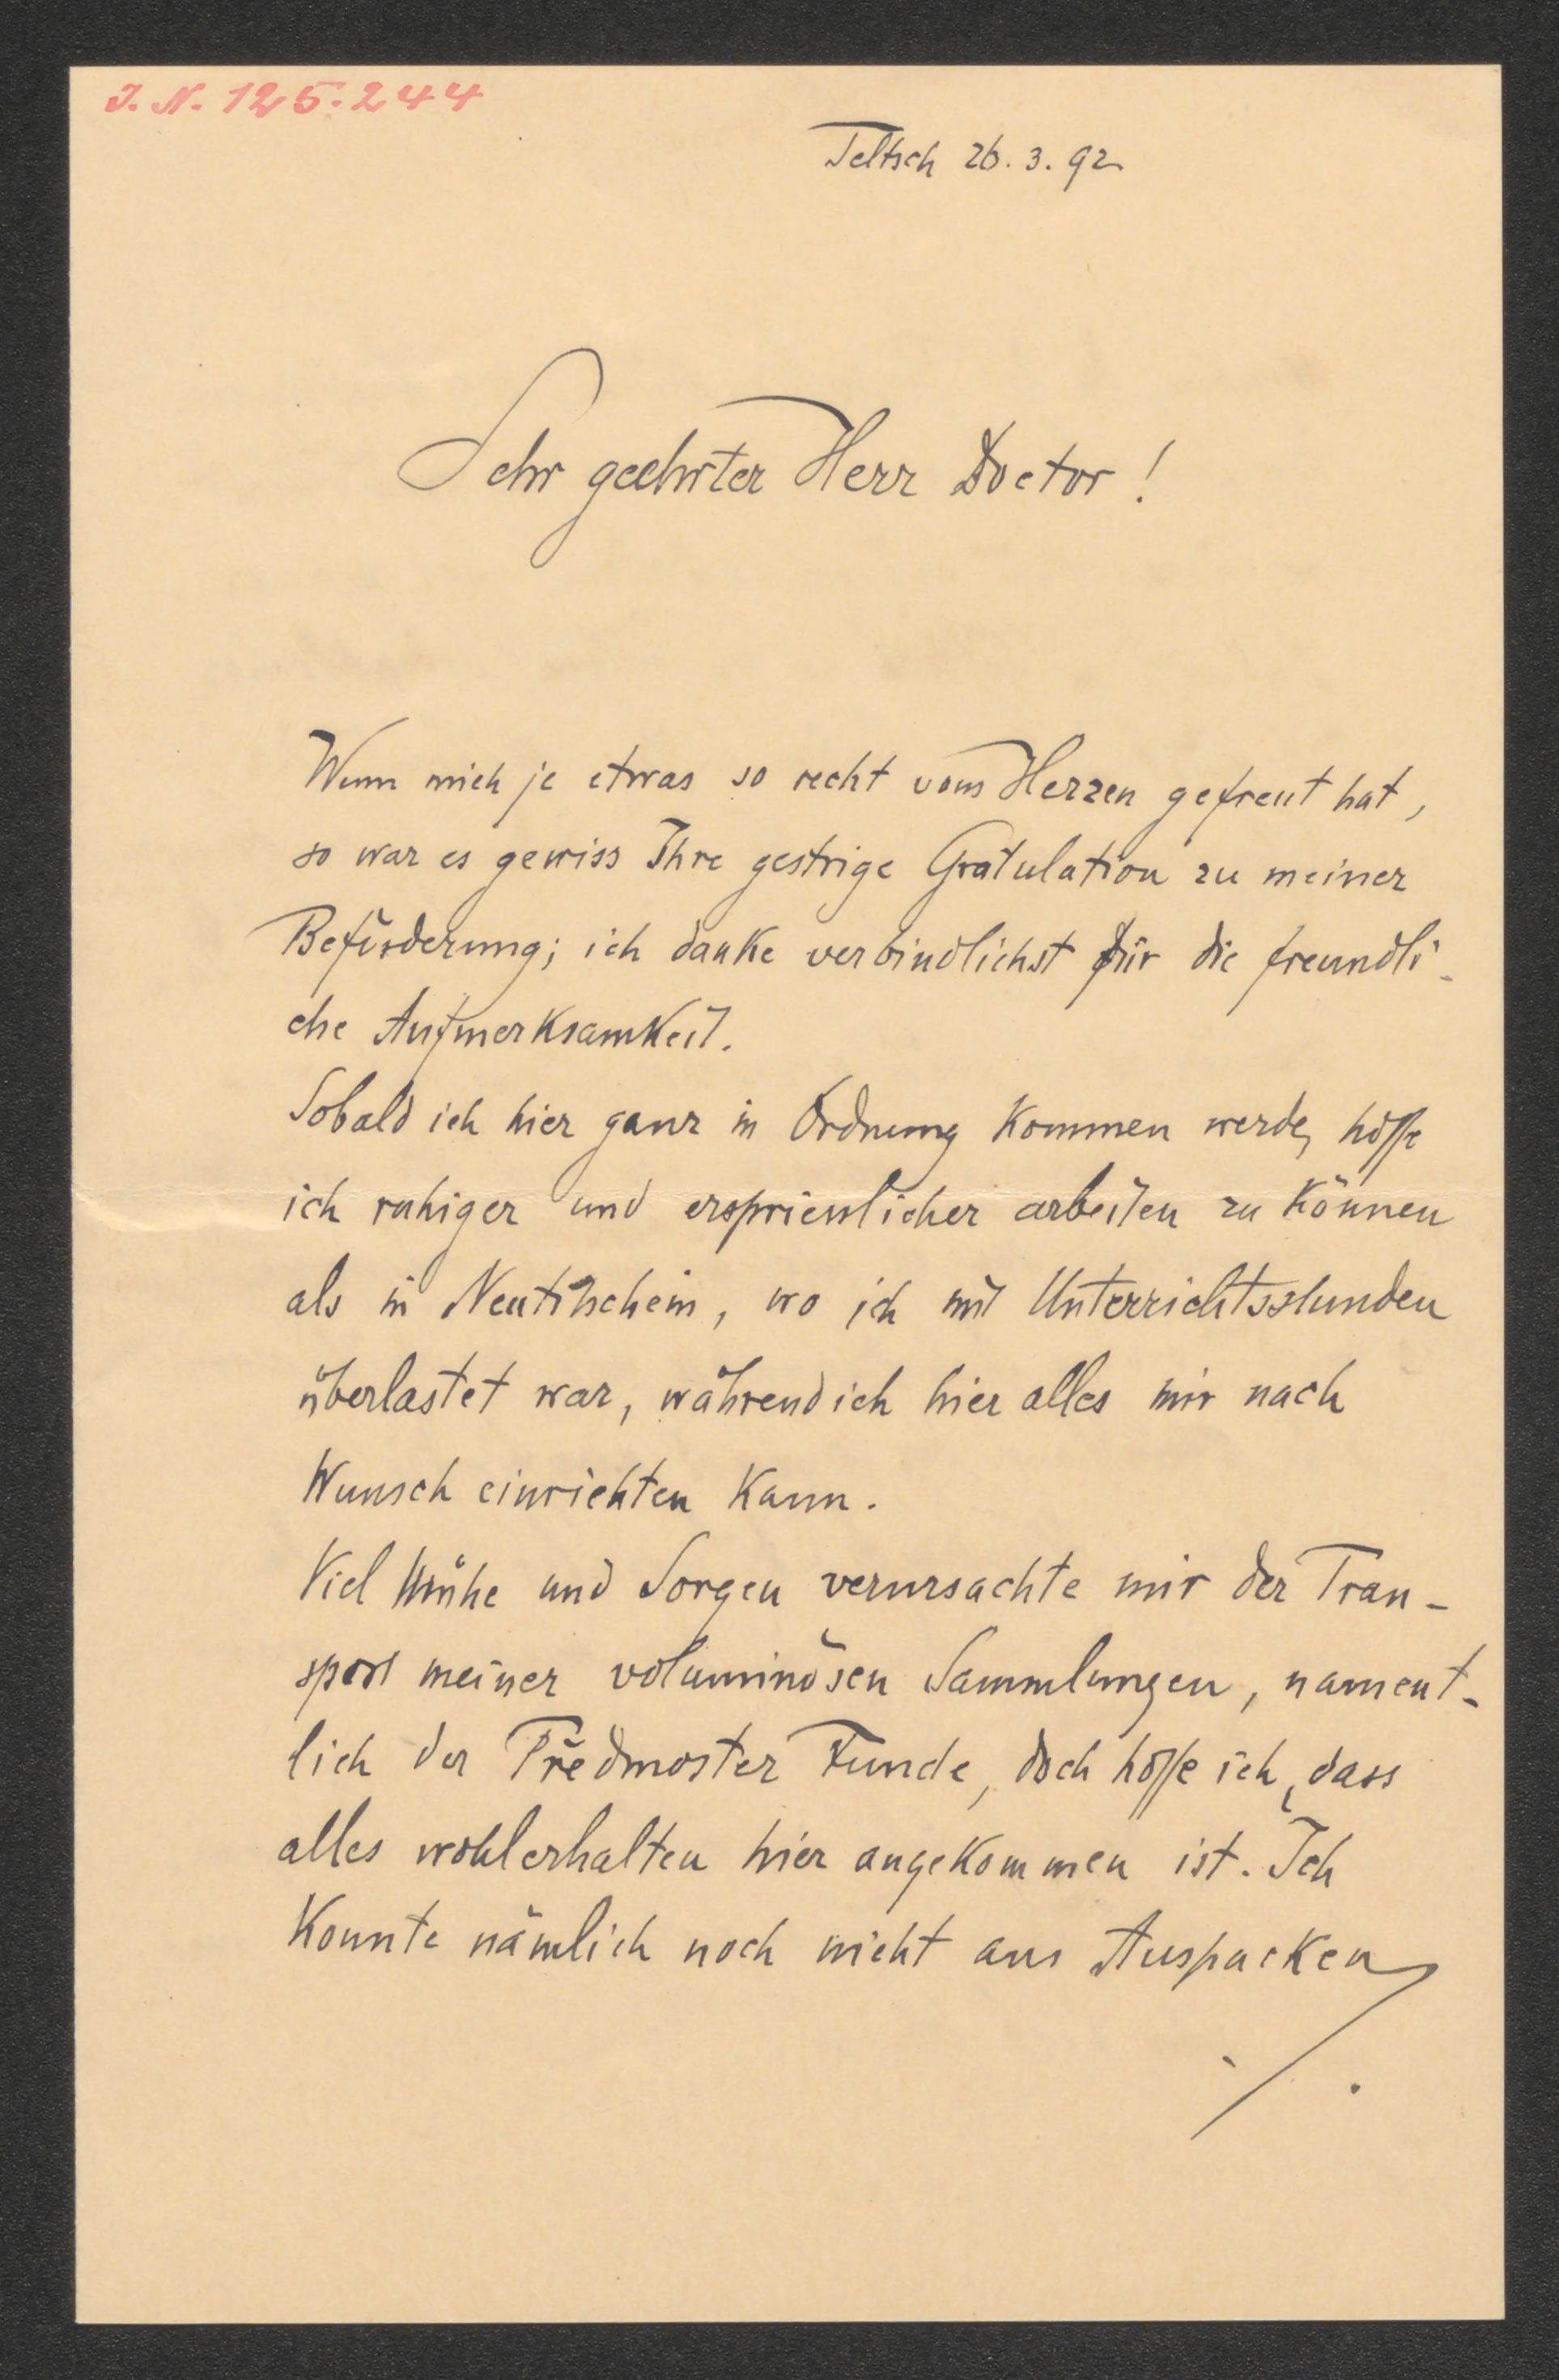 J. N. 125.244
Teltsch 26. 3. 92
Sehr geehrter Herr Doctor!
Wenn mich je etwas so recht vom Herzen gefreut hat,
so war es gewiss Ihre gestrige Gratulation zu meiner
Beförderung; ich danke verbindlichst für die freundli-
che Aufmerksamkeit.
Sobald ich hier ganz in Ordnung kommen werde, hoffe
ich ruhiger und erspriesslicher arbeiten zu können
als in Neutitschein, wo ich mit Unterrichtsstunden
überlastet war, während ich hier alles mir nach
Wunsch einrichten kann.
Viel Mühe und Sorgen verursachte mir der Tran-
sport meiner voluminösen Sammlungen, nament-
lich der Předmoster Funde, doch hoffe ich, dass
alles wohlerhalten hier angekommen ist. Ich
konnte nämlich noch nicht ans Auspacken
./.